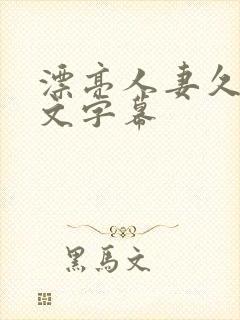 漂亮人妻久
文字幕
黑马文